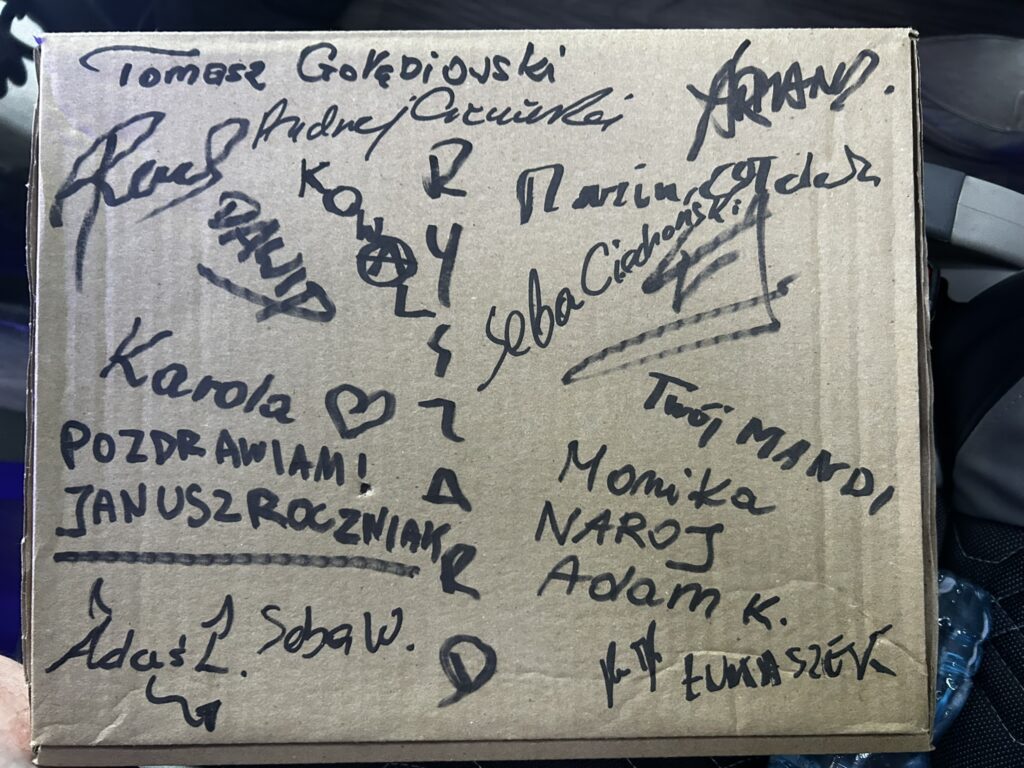 Tomasz Gołębiowski
Andrej
ARMAND.
DAWID
KOWAL
RYSZARD
Marcin
Seba Ciechański
Karola
POZDRAWIAM!
JANUSZ ROCZNIAK
Twój MANDI
Monika
NAROJ
Adam K.
Adaś Ł.
Seba W.
ŁUKASZEK